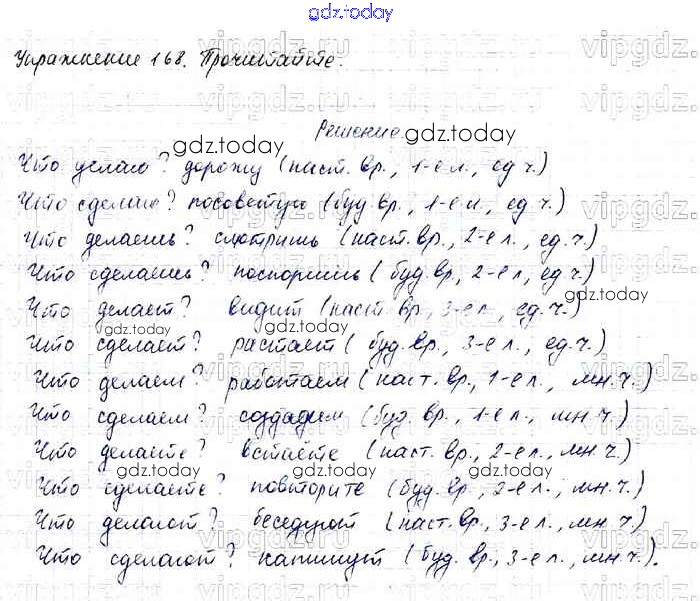 gdz.today
Упражнение 168. Прочитайте.
Решение
Что делаю? дорожу (наст. вр., 1-е л., ед ч.)
Что сделаю? посоветую (буд вр., 1-е л., ед ч.)
Что делаешь? смотришь (наст. вр., 2-е л., ед. ч.)
Что сделаешь? поспоришь (буд. вр, 2-е л., ед. ч.)
Что делает? видит (наст. вр, 3-е л., ед. ч.)
Что сделает? растает (буд. вр., 3-е л., ед. ч.)
Что делаем? работаем (наст. вр., 1-е л., мн. ч.)
Что сделаем? создадим (буд. вр., 1-е л., мн. ч.)
Что делаете? встаёте (наст. вр., 2-е л., мн. ч.)
Что сделаете? повторите (буд. вр, 2-е л., мн. ч.)
Что делают? беседуют (наст. вр., 3-е л., мн. ч.)
Что сделают? напишут (буд. вр., 3-е л., мн. ч.).